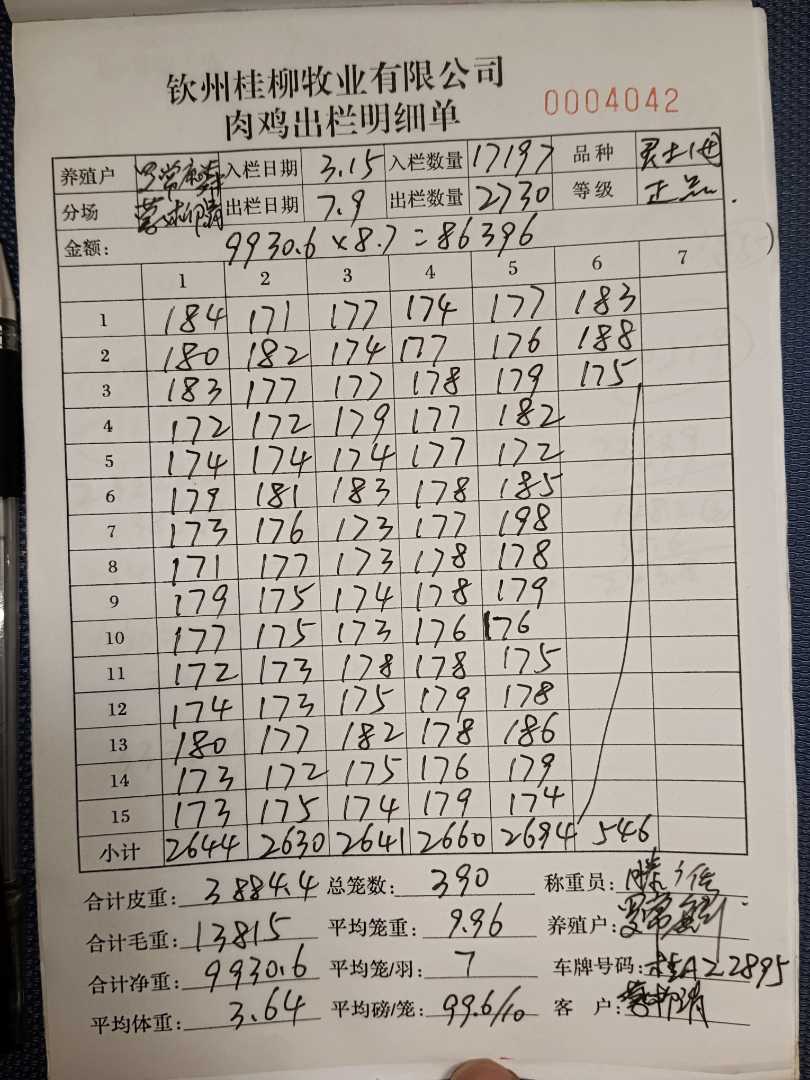 钦州桂柳牧业有限公司
肉鸡出栏明细单 0004042
养殖户 入栏日期 3.15 入栏数量 17197 品种
分场 出栏日期 7.9 出栏数量 2730 等级 正品
金额: 9930.6×8.7=86396
1 2 3 4 5 6 7
1 184 171 177 174 177 183
2 180 182 174 177 176 188
3 183 177 177 178 179 175
4 172 172 179 177 182
5 174 174 174 177 172
6 179 181 183 178 185
7 173 176 173 177 198
8 171 177 173 178 178
9 179 175 174 178 179
10 177 175 173 176 176
11 172 173 178 178 175
12 174 173 175 179 178
13 180 177 182 178 186
14 173 172 175 176 179
15 173 175 174 179 174
小计 2644 2630 2641 2660 2694 546
合计皮重: 3884.4 总笼数: 390 称重员:
合计毛重: 13815 平均笼重: 9.96 养殖户:
合计净重: 9930.6 平均笼/羽: 7 车牌号码: 桂A22895
平均体重: 3.64 平均磅/笼: 99.6/10 客户: